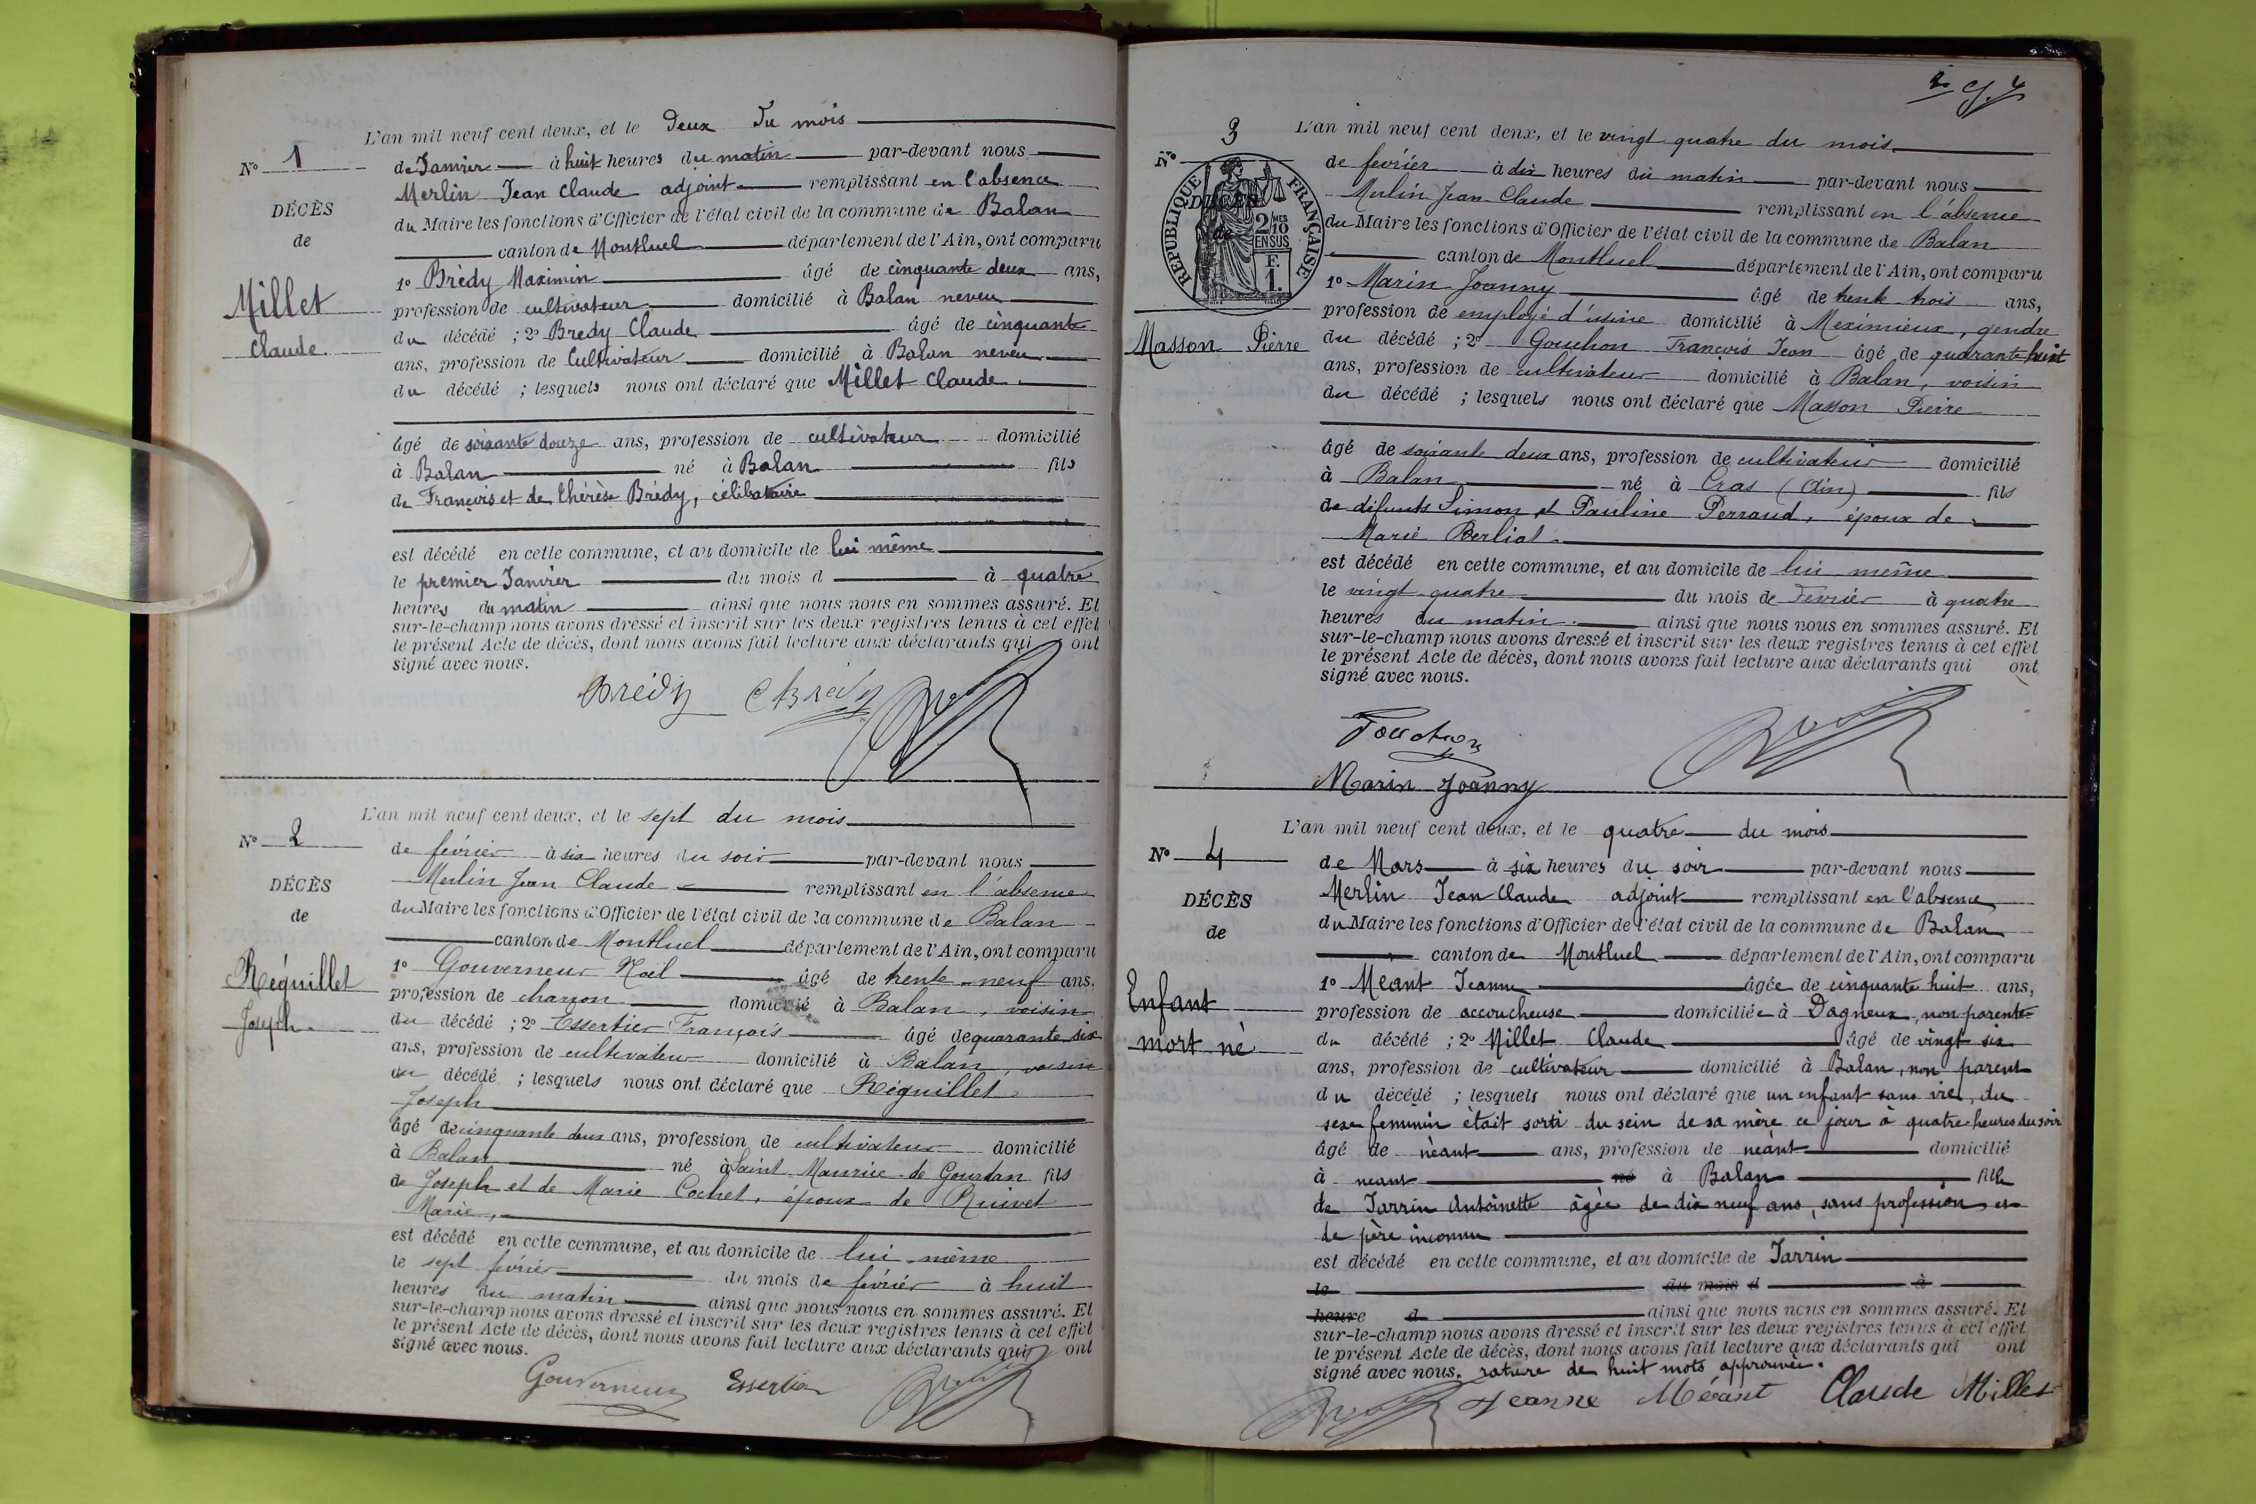 L'an mil neuf cent deux, et le deux du mois
N° 1
de Janvier à huit heures du matin par-devant nous
Merlin Jean Claude adjoint remplissant en l'absence
DÉCÈS
du Maire les fonctions d'Officier de l'état civil de la commune de Balan
de
canton de Montluel département de l'Ain, ont comparu
1° Brédy Maximin âgé de cinquante deux ans,
Millet
profession de cultivateur domicilié à Balan neveu
du décédé ; 2° Bredy Claude âgé de cinquante
Claude
ans, profession de Cultivateur domicilié à Balan neveu
du décédé ; lesquels nous ont déclaré que Millet Claude
âgé de soixante douze ans, profession de cultivateur domicilié
à Balan né à Balan fils
de François et de Thérèse Brédy, célibataire
est décédé en cette commune, et au domicile de lui même
le premier Janvier du mois d à quatre
heures du matin ainsi que nous nous en sommes assuré. Et
sur-le-champ nous avons dressé et inscrit sur les deux registres tenus à cet effet
le présent Acte de décès, dont nous avons fait lecture aux déclarants qui ont
signé avec nous.
Brédy C Brédy
L'an mil neuf cent deux, et le sept du mois
N° 2
de février à six heures du soir par-devant nous
Merlin Jean Claude remplissant en l'absence
DÉCÈS
du Maire les fonctions d'Officier de l'état civil de la commune de Balan
de
canton de Montluel département de l'Ain, ont comparu
1° Gouverneur Noël âgé de trente-neuf ans,
Réguillet
profession de charron domicilié à Balan, voisin
du décédé ; 2° Essertier François âgé de quarante six
Joseph
ans, profession de cultivateur domicilié à Balan, voisin
du décédé ; lesquels nous ont déclaré que Réguillet
Joseph
âgé de cinquante deux ans, profession de cultivateur domicilié
à Balan né à Saint Maurice de Gourdan fils
de Joseph et de Marie Cochet, époux de Ruivet
Marie,
est décédé en cette commune, et au domicile de lui-même
le sept février du mois de février à huit
heures du matin ainsi que nous nous en sommes assuré. Et
sur-le-champ nous avons dressé et inscrit sur les deux registres tenus à cet effet
le présent Acte de décès, dont nous avons fait lecture aux déclarants qui ont
signé avec nous.
Gouverneur Essertier
L'an mil neuf cent deux, et le vingt quatre du mois
N° 3
de février à dix heures du matin par-devant nous
Merlin Jean Claude remplissant en l'absence
DÉCÈS
de
RÉPUBLIQUE FRANÇAISE
2/10 MES
EN SUS
F.
1.
du Maire les fonctions d'Officier de l'état civil de la commune de Balan
canton de Montluel département de l'Ain, ont comparu
1° Marin Joanny âgé de trente-trois ans,
profession de employé d'usine domicilié à Meximieux, gendre
Masson Pierre
du décédé ; 2° Gouchon François Jean âgé de quarante huit
ans, profession de cultivateur domicilié à Balan, voisin
du décédé ; lesquels nous ont déclaré que Masson Pierre
âgé de soixante deux ans, profession de cultivateur domicilié
à Balan né à Cras (Ain) fils
de défunts Simon et Pauline Perraud, époux de
Marie Berliat
est décédé en cette commune, et au domicile de lui même
le vingt-quatre du mois de Février à quatre
heures du matin ainsi que nous nous en sommes assuré. Et
sur-le-champ nous avons dressé et inscrit sur les deux registres tenus à cet effet
le présent Acte de décès, dont nous avons fait lecture aux déclarants qui ont
signé avec nous.
Marin Joanny
L'an mil neuf cent deux, et le quatre du mois
N° 4
de Mars à six heures du soir par-devant nous
DÉCÈS
Merlin Jean Claude adjoint remplissant en l'absence
de
du Maire les fonctions d'Officier de l'état civil de la commune de Balan
canton de Montluel département de l'Ain, ont comparu
1° Méant Jeanne âgée de cinquante huit ans,
Enfant
profession de accoucheuse domiciliée à Dagneux, non parente
mort né
du décédé ; 2° Millet Claude âgé de vingt six
ans, profession de cultivateur domicilié à Balan, non parent
du décédé ; lesquels nous ont déclaré que un enfant sans vie, du
sexe féminin était sorti du sein de sa mère ce jour à quatre heures du soir
âgé de néant ans, profession de néant domicilié
à néant né à Balan fille
de Jarrin Antoinette âgée de dix neuf ans, sans profession et
de père inconnu
est décédé en cette commune, et au domicile de Jarrin
le du mois d à
heure d ainsi que nous nous en sommes assuré. Et
sur-le-champ nous avons dressé et inscrit sur les deux registres tenus à cet effet
le présent Acte de décès, dont nous avons fait lecture aux déclarants qui ont
signé avec nous. rature de huit mots approuvée.
Jeanne Méant Claude Millet